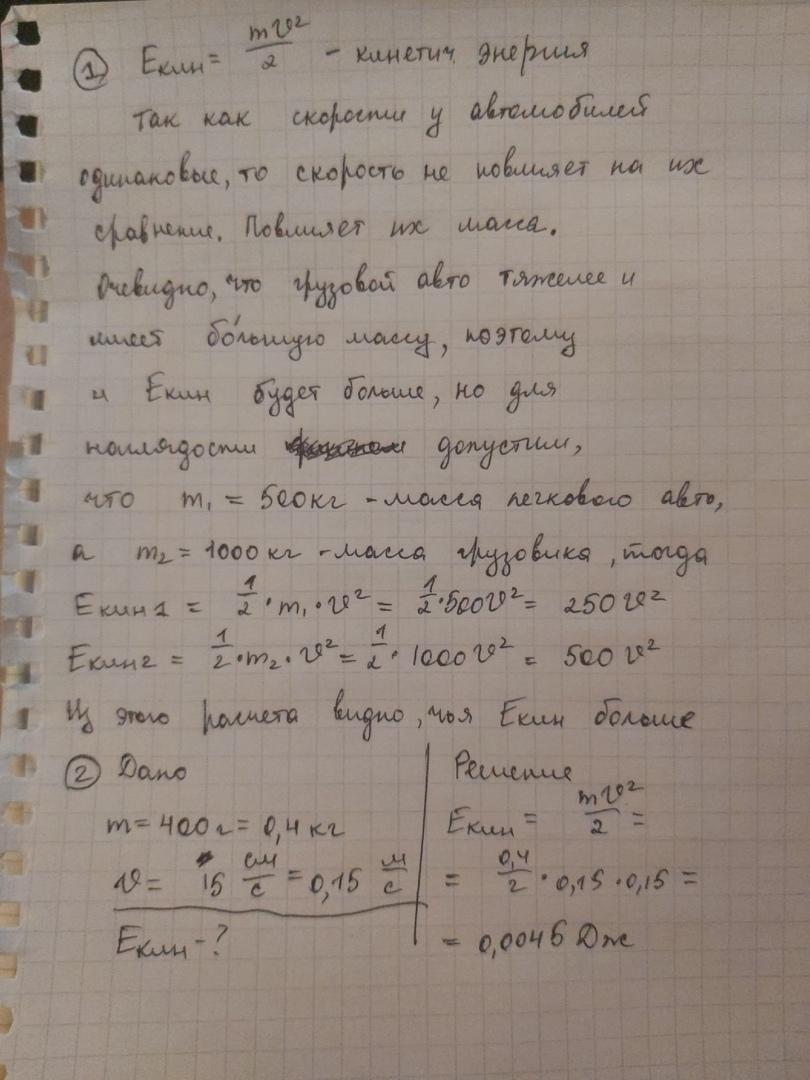 ① Eкин = mv²/2 - кинетич. энергия
Так как скорости у автомобилей
одинаковые, то скорость не повлияет на их
сравнение. Повлияет их масса.
Очевидно, что грузовой авто тяжелее и
имеет бо́льшую массу, поэтому
и Eкин будет больше, но для
наглядости допустим,
что m₁ = 500кг - масса легкового авто,
а m₂ = 1000 кг - масса грузовика, тогда
Eкин1 = 1/2 · m₁ · v² = 1/2 · 500v² = 250 v²
Eкин2 = 1/2 · m₂ · v² = 1/2 · 1000 v² = 500 v²
Из этого расчета видно, чья Eкин больше
② Дано
m = 400 г = 0,4 кг
v = 15 см/с = 0,15 м/с
Eкин - ?
Решение
Eкин = mv²/2 =
= 0,4/2 · 0,15 · 0,15 =
= 0,0045 Дж